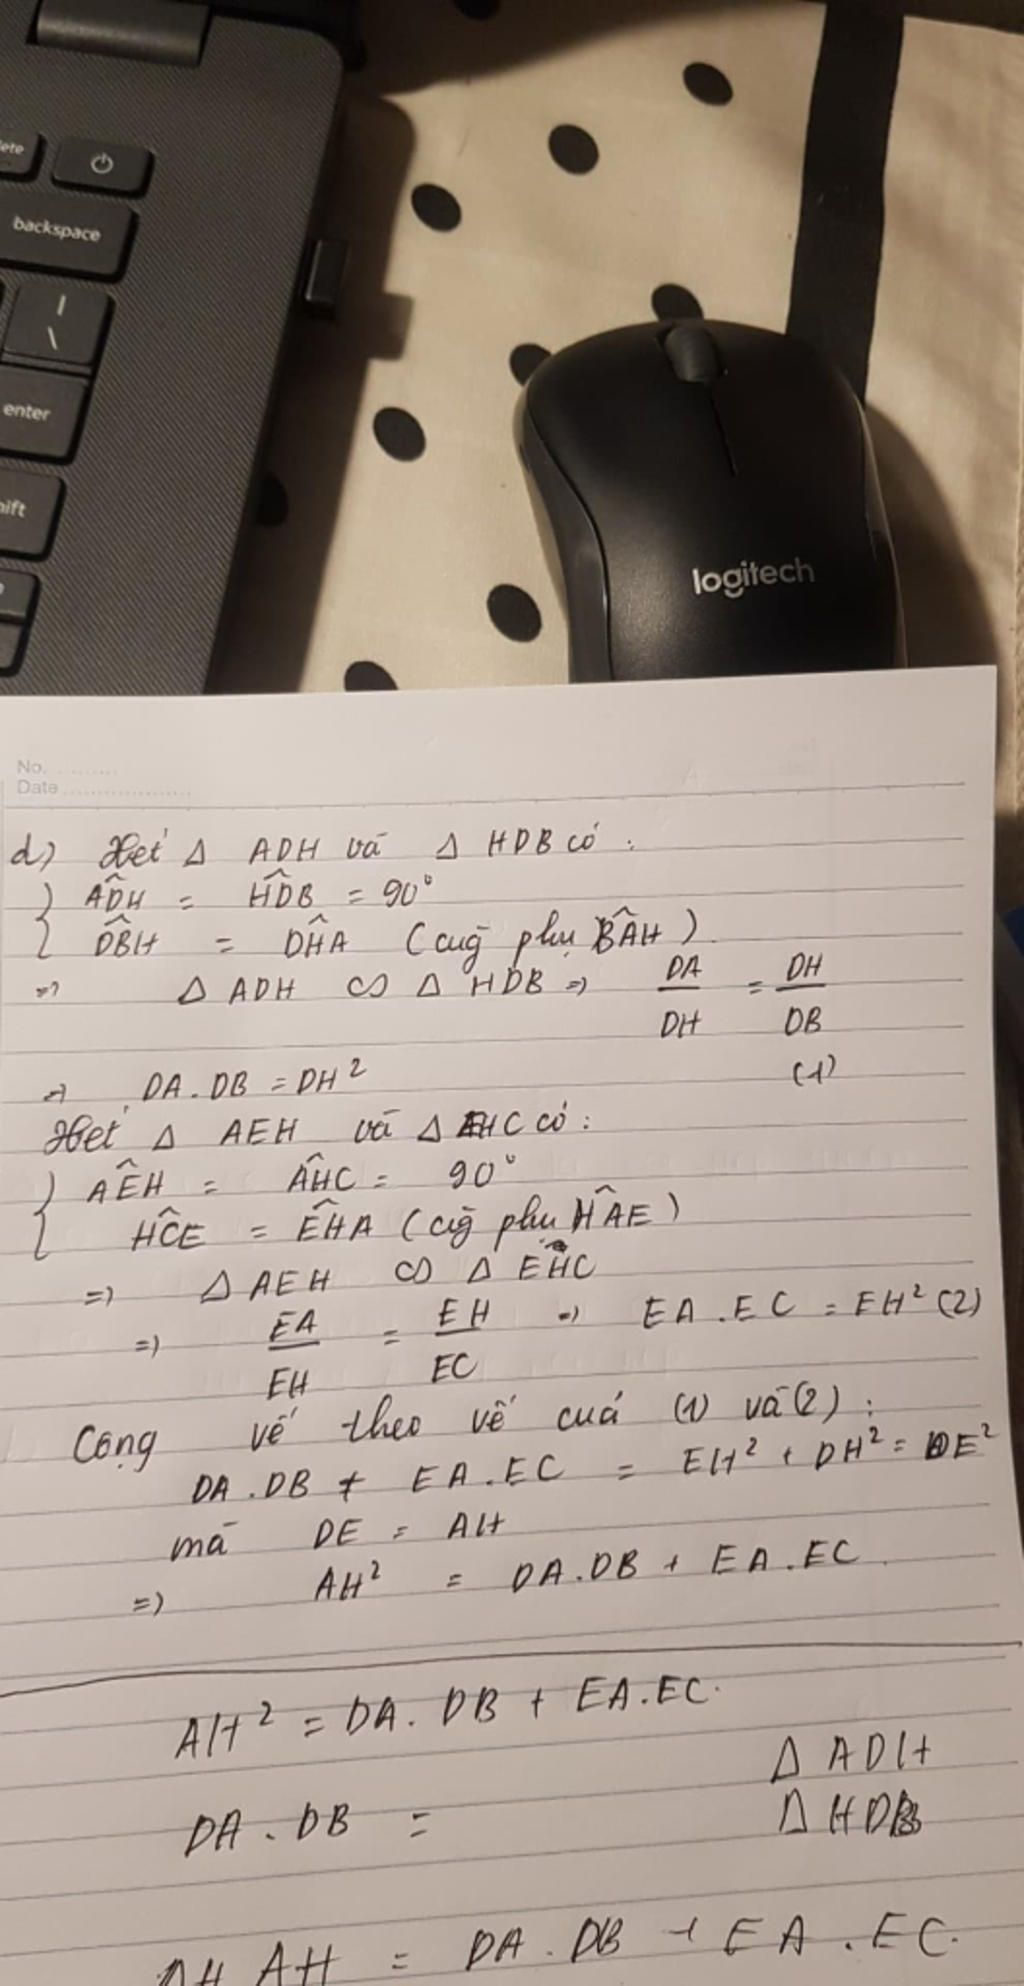 ete
backspace
|
\
enter
hift
logitech
No. ..........
Date ....................
d) Xét Δ ADH và Δ HDB có :
{ ADH^ = HDB^ = 90°
DBH^ = DHA^ (cùg phụ BAH^)
=> Δ ADH ∽ Δ HDB => DA/DH = DH/DB
(1)
=> DA.DB = DH²
Xét Δ AEH và Δ EHC có :
{ AEH^ = AHC^ = 90°
HCE^ = EHA^ (cùg phụ HAE^)
=> Δ AEH ∽ Δ EHC
=> EA/EH = EH/EC => EA.EC = EH² (2)
Cộng vế theo vế cuả (1) và (2) :
DA.DB + EA.EC = EH² + DH² = DE²
mà DE = AH
=> AH² = DA.DB + EA.EC
AH² = DA.DB + EA.EC.
Δ ADH
DA.DB =
Δ HDB
AH = DA.DB + EA.EC.